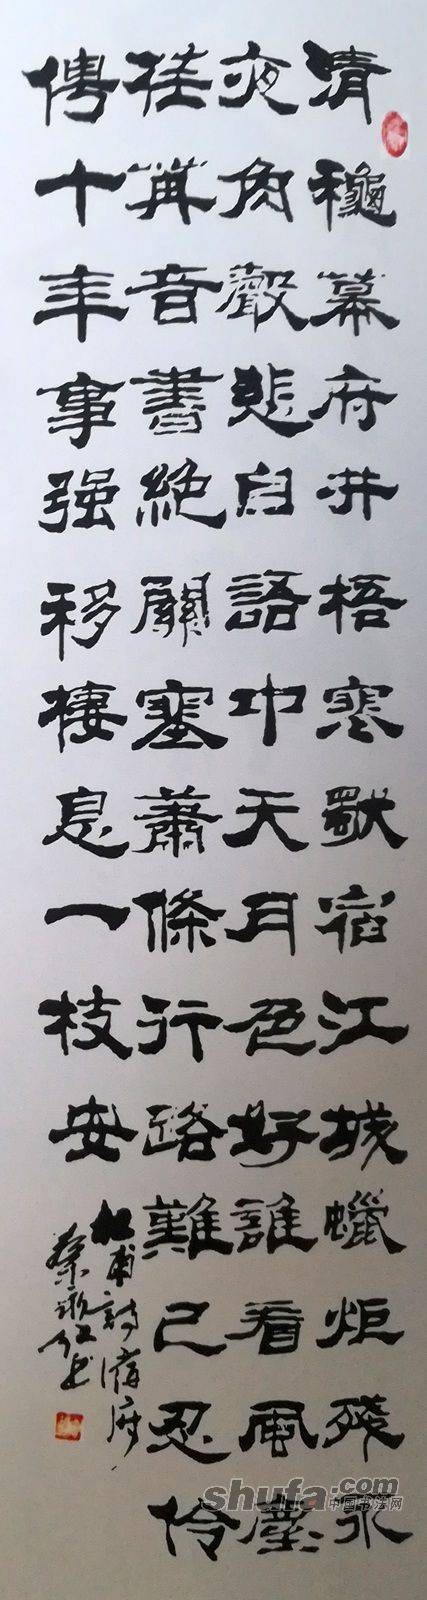 清龝幕府井梧寒獨宿江城蠟炬殘永
夜角聲悲自語中天月色好誰看風塵
荏苒音書絕關塞蕭條行路難已忍伶
俜十年事强移棲息一枝安
杜甫詩宿府
shufa.com
中国书法网